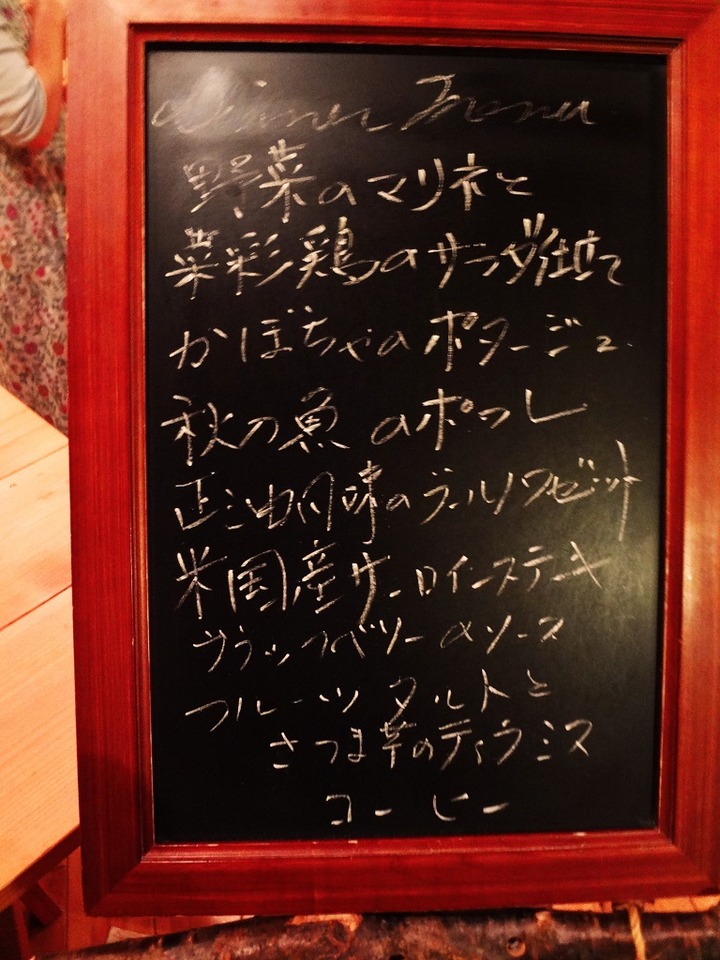 Dinner Menu
野菜のマリネと
菜彩鶏のサラダ仕立て
かぼちゃのポタージュ
秋の魚のポワレ
風味のブールノワゼット
米国産サーロインステーキ
ブラックベリーのソース
フルーツタルトと
さつま芋のティラミス
コーヒー